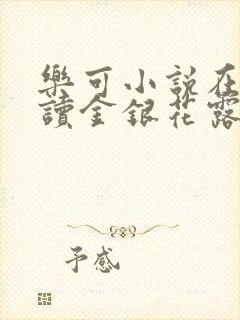 樂可小說在
讀金銀花露
予感